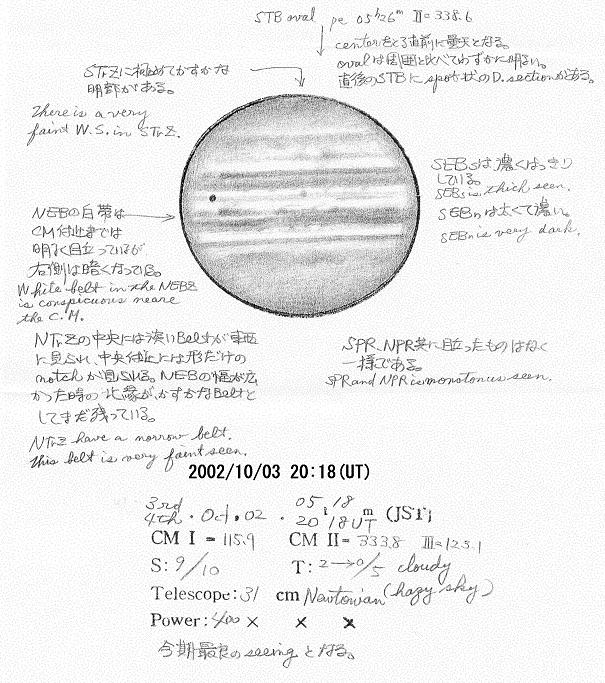 STB oval pe 05ʰ26ᵐ II=338.6
centerをとる直前に曇天となる。
ovalは周囲と比べてわずかに明るい。
直後のSTBにspot状のD.sectionがある。
STrZに極めてかすかな
明部がある。
There is a very
faint W.S. in STrZ.
SEBsは濃くはっきり
している。
SEBs is thick seen.
SEBnは太くて濃い。
SEBn is very dark.
NEBの白帯は
CM付近までは
明るく目立っているが
右側は暗くなっている。
White belt in the NEBZ
is conspicuous neare
the C.M.
NTrZの中央には淡いBeltが東西
に見られ、中央付近には形だけの
notchが見られる。NEBの幅が広
かった時の北縁が、かすかなBeltと
してまだ残っている。
NTrZ have a norrow belt.
This belt is very faint seen.
SPR、NPR共に目立ったものはなく
一様である。
SPR and NPR is monotonus seen.
2002/10/03 20:18(UT)
3rd
4th . Oct. 02 . 05 18 m (JST)
20 18 UT
CM I = 115.9 CM II= 333.8 III=125.1
S: 9/10 T: 2→0/5 cloudy
Telescope: 31 cm Newtonian (hazy sky)
Power: 400 × × ×
今期最良のseeingとなる。